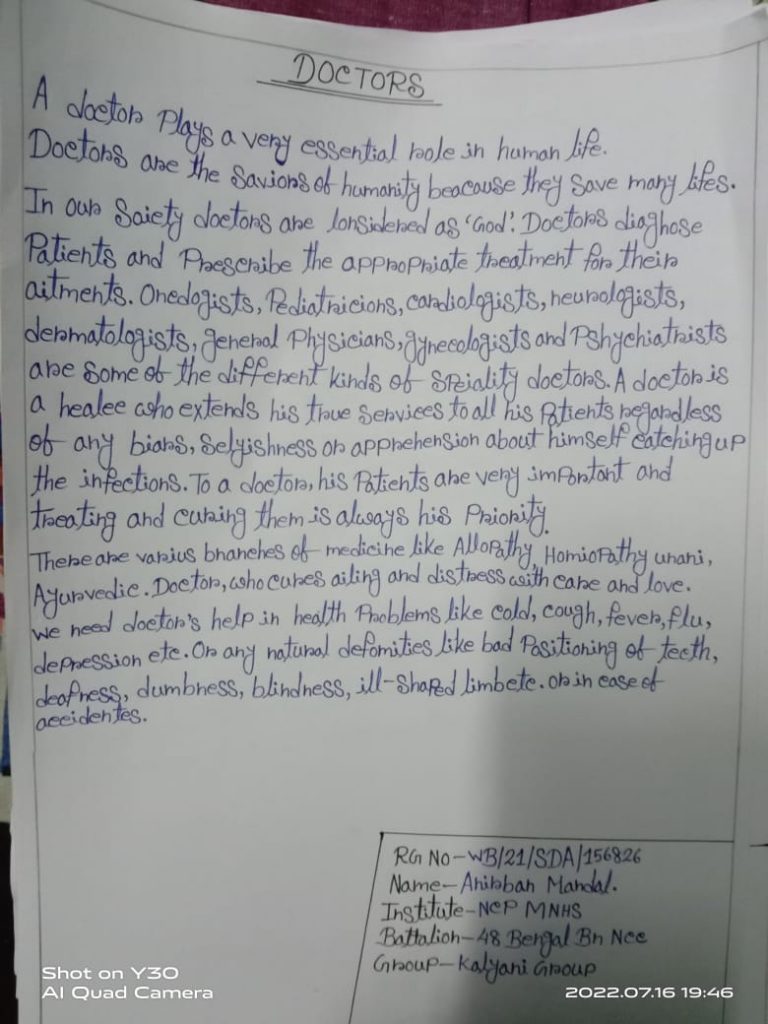 DOCTORS
A doctor Plays a very essential role in human life.
Doctors are the Saviors of humanity beacause they Save many lifes.
In our Saiety doctors are lonsidered as 'God'. Doctors diaghose
Patients and Prescribe the appropriate treatment for their
aitments. Onedogists, Pediatricions, cardiologists, neurologists,
dermatologists, general Physicians, gynecologists and Pshychiatrists
are Some of the different kinds of SPeiality doctors. A doctor is
a healee who extends his true Services to all his Patients regardless
of any biars, Selyishness or apprehension about himself catching up
the infections. To a doctor, his Patients are very important and
treating and curing them is always his Priority.
There are varius branches of medicine like Allopathy, Homiopathy unani,
Ayurvedic. Doctor, who cures ailing and distress with care and love.
we need doctor's help in health Problems like cold, cough, fever, flu,
depression etc. Or any natural defomities like bad Positioning of teeth,
deafness, dumbness, blindness, ill-Shaped limbetc. or in case of
accidentes.
RG No-WB/21/SDA/156826
Name-Anirban Mandal.
Institute-NCP MNHS
Battalion-48 Bengal Bn Ncc
Group-Kalyani Group
Shot on Y30
AI Quad Camera
2022.07.16 19:46